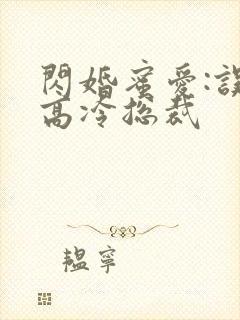 閃婚蜜愛:誤
高冷总裁
韞寧